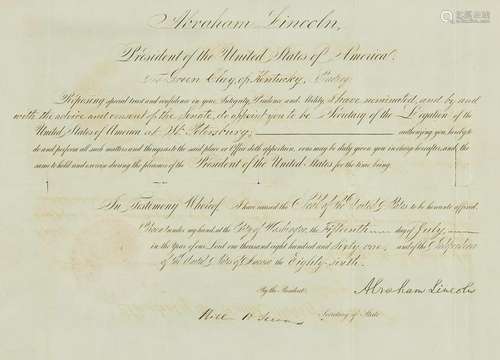 Abraham Lincoln,
President of the United States of America.
To Green Clay, of Kentucky, Greeting
Reposing special trust and confidence in your Integrity, Prudence and Ability I have nominated, and by and
with the advice and consent of the Senate, do appoint you to be Secretary of the Legation of the
United States of America at St. Petersburg; authorizing you, hereby to
do and perform all such matters and things as to the said place or Office doth appertain, or as may be duly given you in charge hereafter, and the
same to hold and exercise during the pleasure of the President of the United States for the time being.
In Testimony Whereof, I have caused the Seal of the United States to be hereunto affixed.
Given under my hand at the City of Washington the Fifteenth day of July
in the Year of our Lord one thousand eight hundred and sixty one, and of the Independence
of the United States of America, the Eighty-sixth.
By the President: Abraham Lincoln
Secretary of State